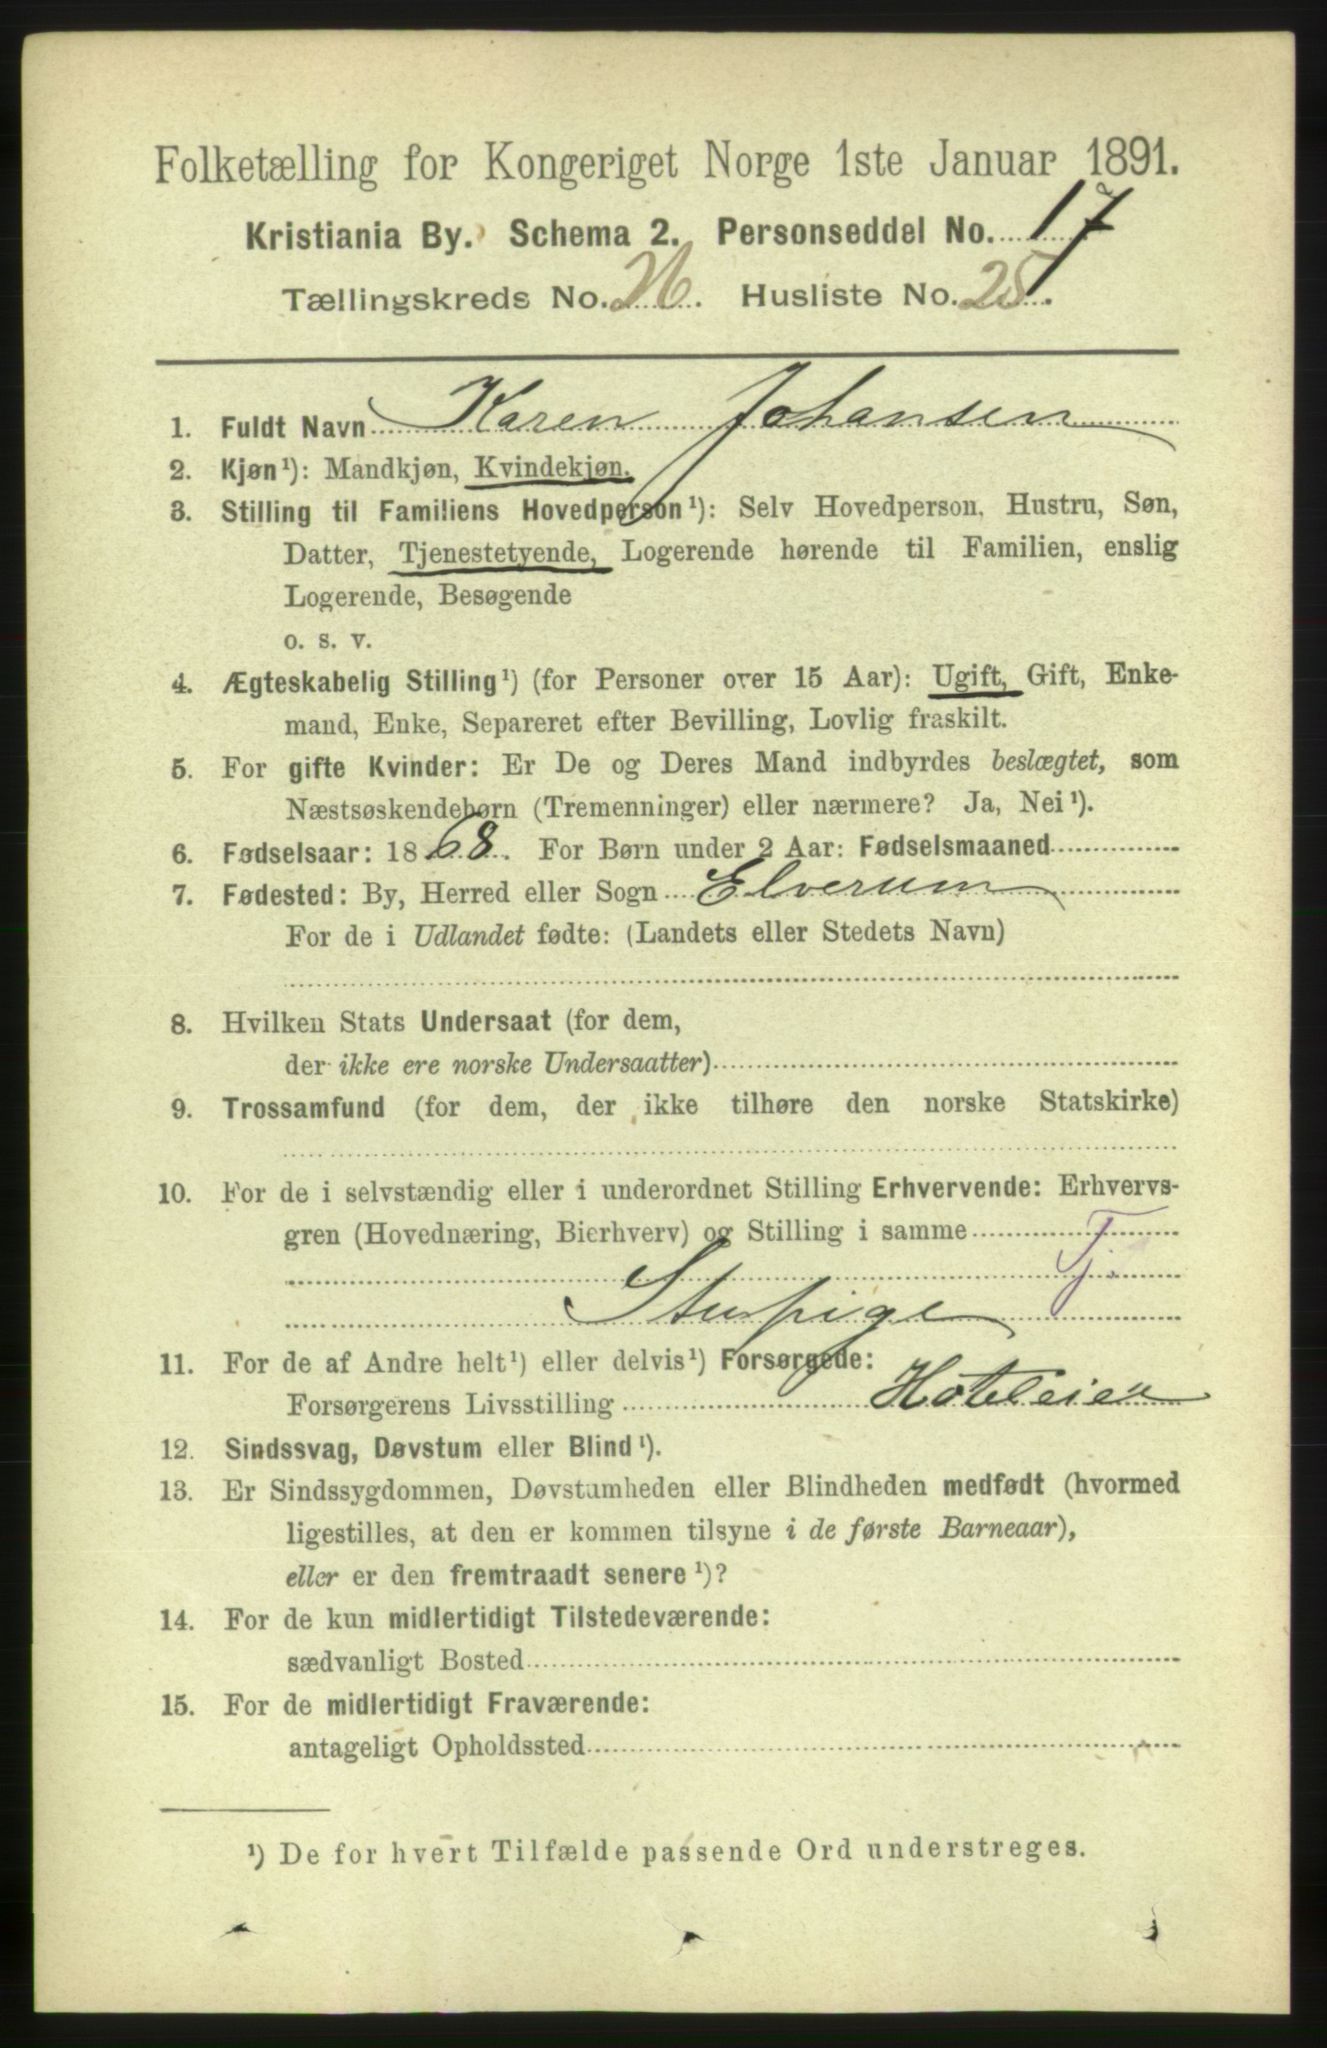 Folketælling for Kongeriget Norge 1ste Januar 1891.
Kristiania By. Schema 2. Personseddel No. 17
Tællingskreds No. 26. Husliste No. 25.
1. Fuldt Navn Karen Johansen
2. Kjøn¹): Mandkjøn, Kvindekjøn.
3. Stilling til Familiens Hovedperson¹): Selv Hovedperson, Hustru, Søn,
Datter, Tjenestetyende, Logerende hørende til Familien, enslig
Logerende, Besøgende
o. s. v.
4. Ægteskabelig Stilling¹) (for Personer over 15 Aar): Ugift, Gift, Enke-
mand, Enke, Separeret efter Bevilling, Lovlig fraskilt.
5. For gifte Kvinder: Er De og Deres Mand indbyrdes beslægtet, som
Næstsøskendebørn (Tremenninger) eller nærmere? Ja, Nei¹).
6. Fødselsaar: 1868. For Børn under 2 Aar: Fødselsmaaned
7. Fødested: By, Herred eller Sogn Elverum
For de i Udlandet fødte: (Landets eller Stedets Navn)
8. Hvilken Stats Undersaat (for dem,
der ikke ere norske Undersaatter)
9. Trossamfund (for dem, der ikke tilhøre den norske Statskirke)
10. For de i selvstændig eller i underordnet Stilling Erhvervende: Erhvervs-
gren (Hovednæring, Bierhverv) og Stilling i samme
Tj.
Stupige
11. For de af Andre helt¹) eller delvis¹) Forsørgede:
Forsørgerens Livsstilling Hoteleier
12. Sindssvag, Døvstum eller Blind¹).
13. Er Sindssygdommen, Døvstumheden eller Blindheden medfødt (hvormed
ligestilles, at den er kommen tilsyne i de første Barneaar),
eller er den fremtraadt senere¹)?
14. For de kun midlertidigt Tilstedeværende:
sædvanligt Bosted
15. For de midlertidigt Fraværende:
antageligt Opholdssted
¹) De for hvert Tilfælde passende Ord understreges.